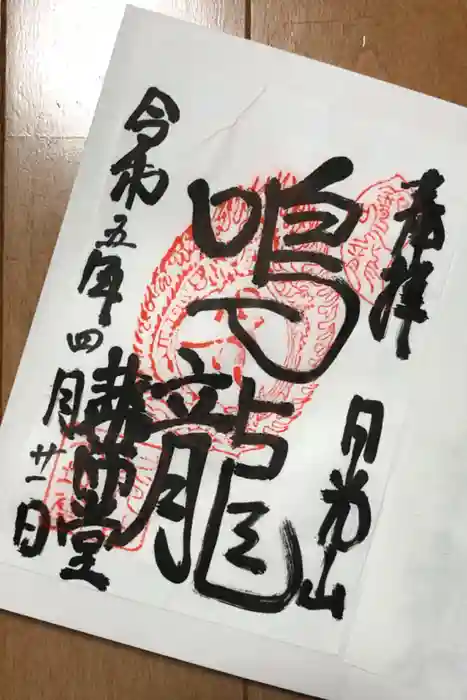 奉拝
日光山
鳴龍
薬師堂
令和五年四月廿一日